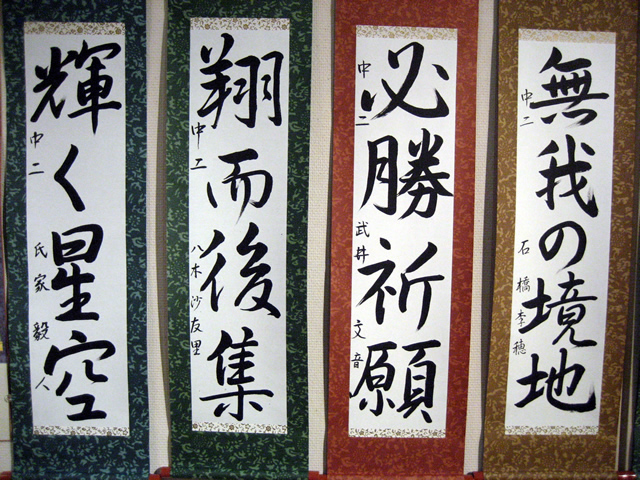 無我の境地
中二 石橋李穂
必勝祈願
中二 武井文音
翔而後集
中二 八木沙友里
輝く星空
中二 氏家毅人